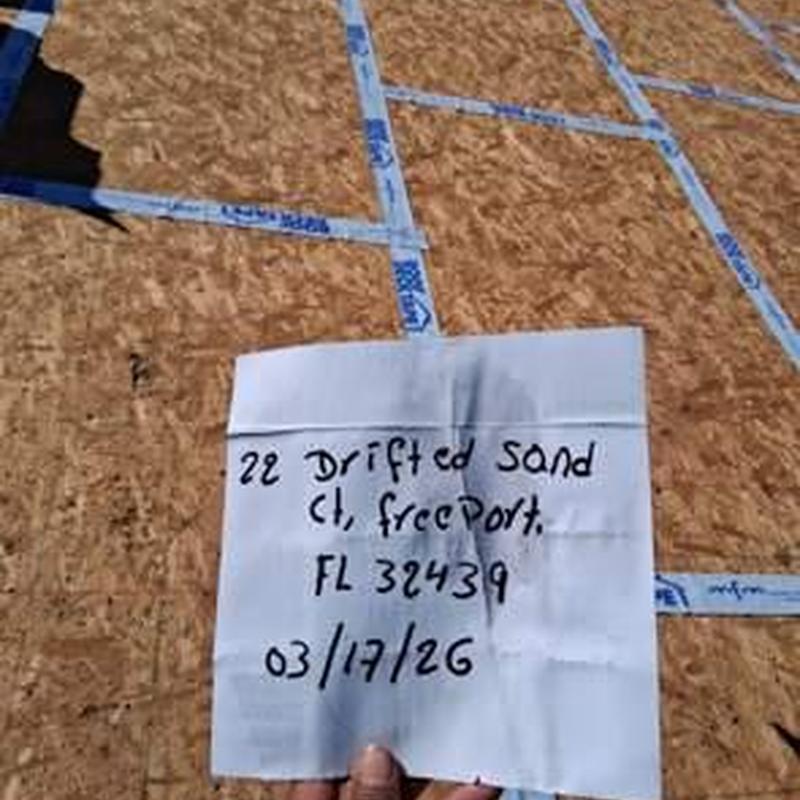 22 Drifted Sand
Ct, freeport.
FL 32439
03/17/26